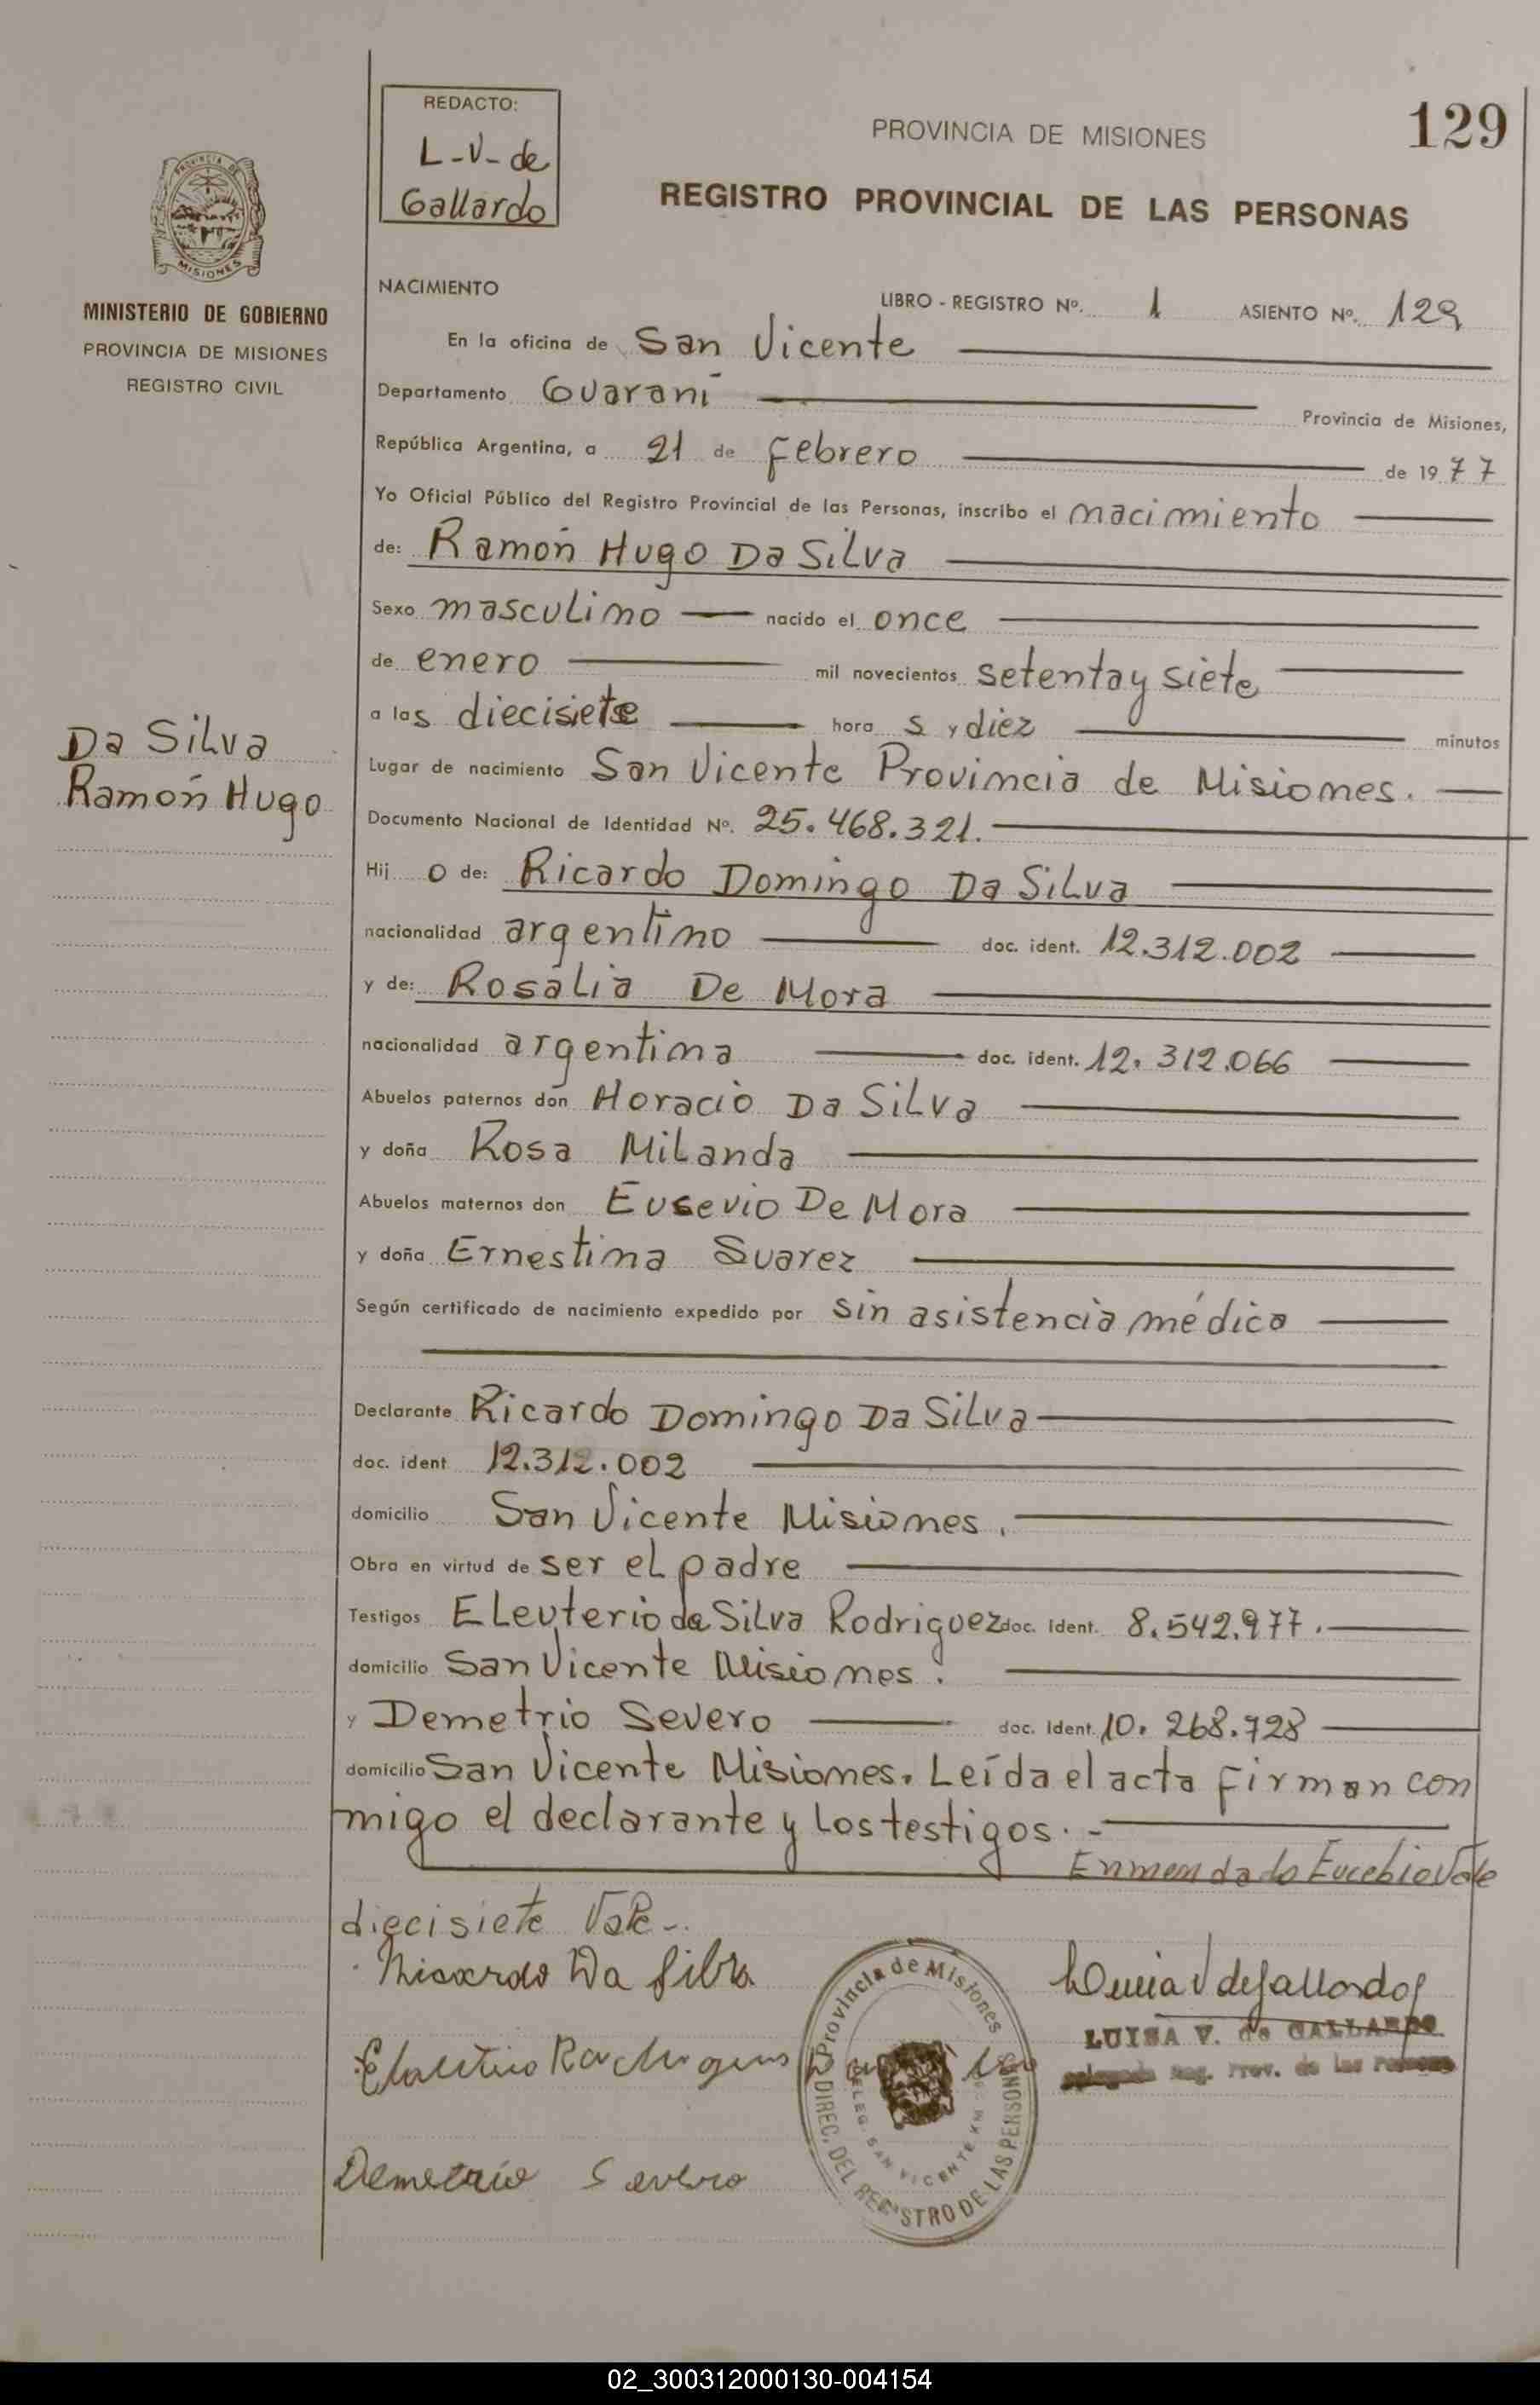 REDACTO:
L-V- de
Gallardo
PROVINCIA DE MISIONES
129
REGISTRO PROVINCIAL DE LAS PERSONAS
PROVINCIA DE
MISIONES
MINISTERIO DE GOBIERNO
PROVINCIA DE MISIONES
REGISTRO CIVIL
NACIMIENTO
LIBRO - REGISTRO Nº. 1 ASIENTO Nº. 129
En la oficina de San Vicente
Departamento Guaraní Provincia de Misiones,
República Argentina, a 21 de Febrero de 1977
Yo Oficial Público del Registro Provincial de las Personas, inscribo el nacimiento
de: Ramón Hugo Da Silva
Sexo masculino nacido el once
de enero mil novecientos setenta y siete
a las diecisiete hora s y diez minutos
Da Silva
Ramón Hugo
Lugar de nacimiento San Vicente Provincia de Misiones.
Documento Nacional de Identidad Nº. 25.468.321.
Hij o de: Ricardo Domingo Da Silva
nacionalidad argentino doc. ident. 12.312.002
y de: Rosalia De Mora
nacionalidad argentina doc. ident. 12.312.066
Abuelos paternos don Horacio Da Silva
y doña Rosa Milanda
Abuelos maternos don Eusevio De Mora
y doña Ernestina Suarez
Según certificado de nacimiento expedido por sin asistencia médica
Declarante Ricardo Domingo Da Silva
doc. ident 12.312.002
domicilio San Vicente Misiones.
Obra en virtud de ser el padre
Testigos Eleuterio da Silva Rodriguez doc. Ident. 8.542.977.
domicilio San Vicente Misiones.
y Demetrio Severo doc. Ident. 10.268.728
domicilio San Vicente Misiones. Leída el acta Firman con
migo el declarante y los testigos. -
Enmendado Eucebio Vale
diecisiete Vale -.
Ricardo Da Silva
Demetrio Severo
Provincia de Misiones
DIREC. DEL REGISTRO DE LAS PERSONAS
DELEG. SAN VICENTE KM
LUISA V. de GALLARDO
Delegada Reg. Prov. de las Personas
02_300312000130-004154